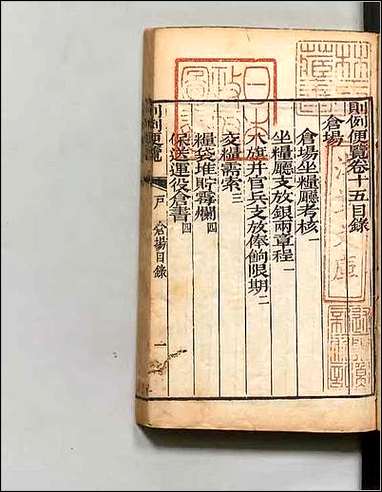 則例便覽卷十五目錄
倉場
倉場坐糧廳考核一
坐糧廳支放銀兩章程一
八旗并官兵支放俸餉限期二
交糧需索三
糧袋堆貯霉爛四
保送運役倉書四
則例便覽 戶 倉場目錄 一